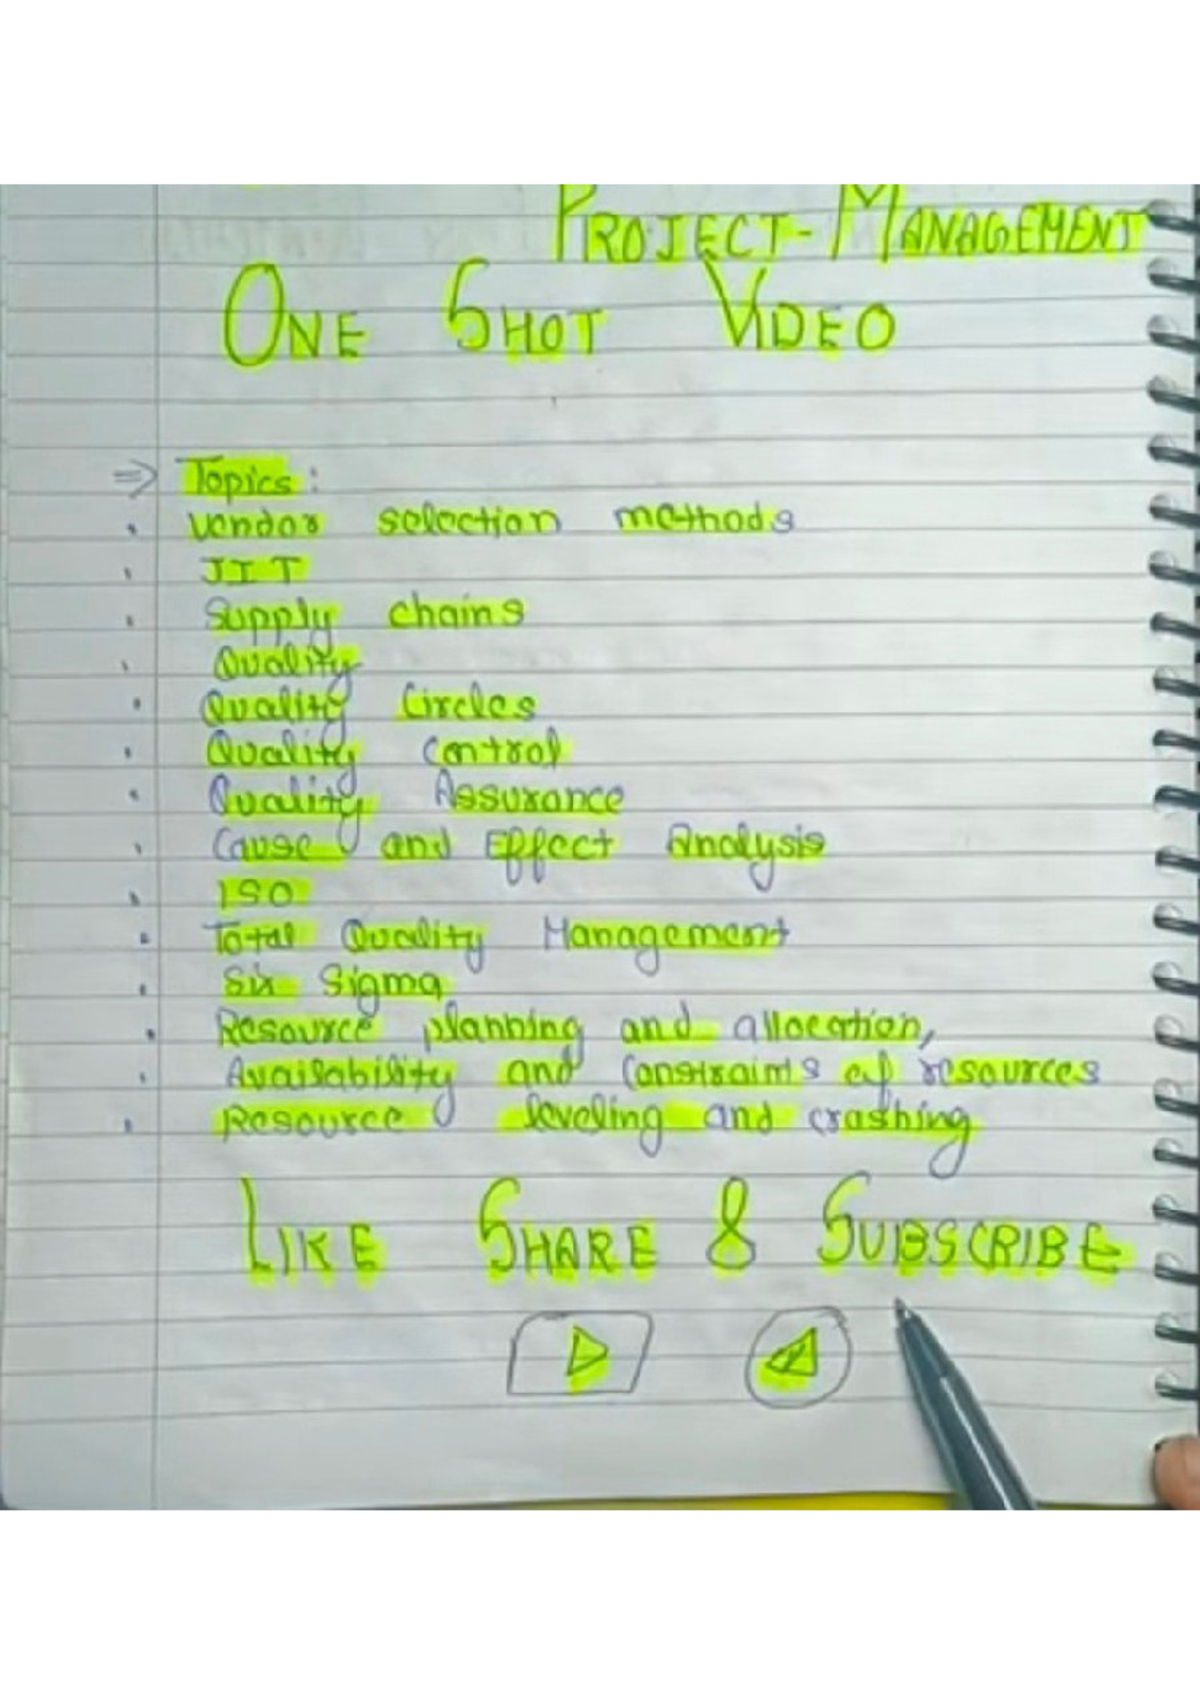 PROJECT-MANAGEMENT
ONE SHOT VIDEO
⇒ Topics:
• Vendor selection methods
• JIT
• Supply chains
• Quality
• Quality Circles
• Quality Control
• Quality Assurance
• Cause and Effect Analysis
• ISO
• Total Quality Management
• Six Sigma
• Resource planning and allocation,
• Availability and Constraints of resources
• Resource leveling and crashing
LIKE SHARE & SUBSCRIBE